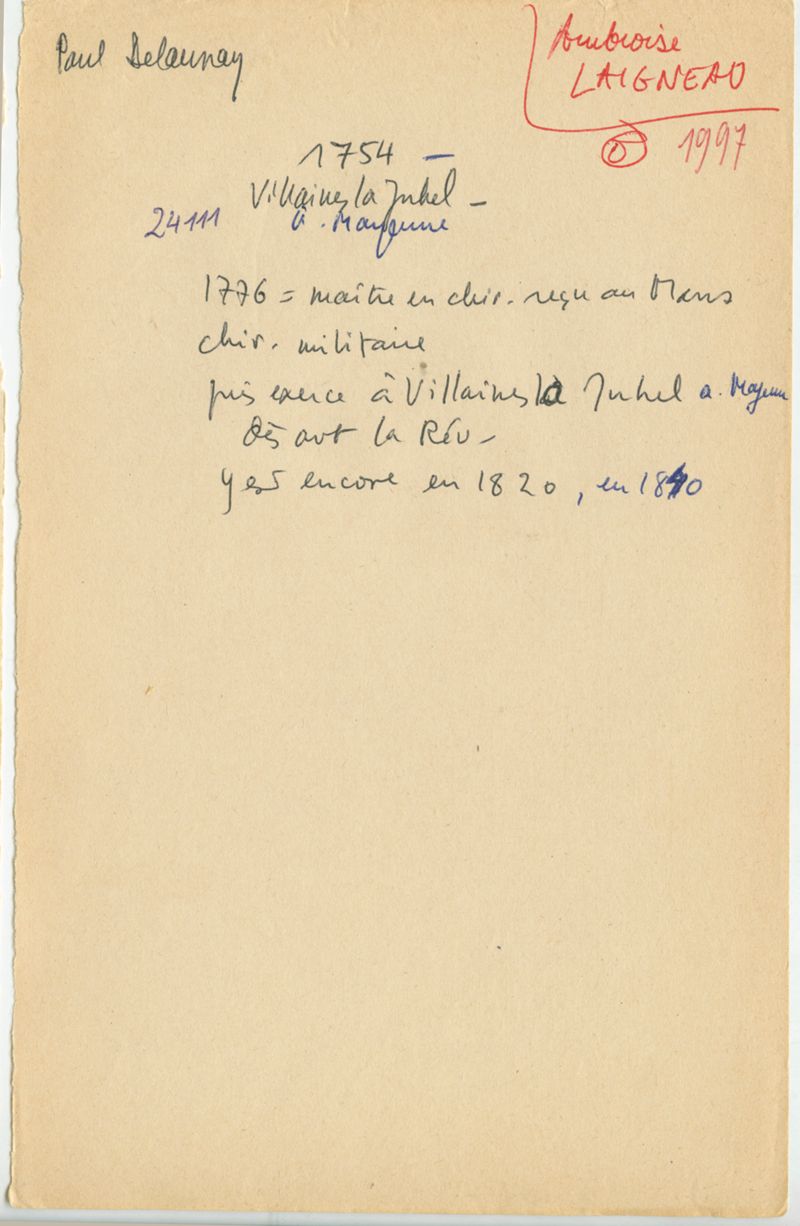 Paul Delaunay
Ambroise
LAIGNEAU
1997
1754 —
Villaines la Juhel —
24111 à. Mayenne
1776 = maître en chir. reçu au Mans
chir. militaire
puis exerce à Villaines la Juhel a. Mayenne
dès avt la Rév -
y est encore en 1820, en 1810